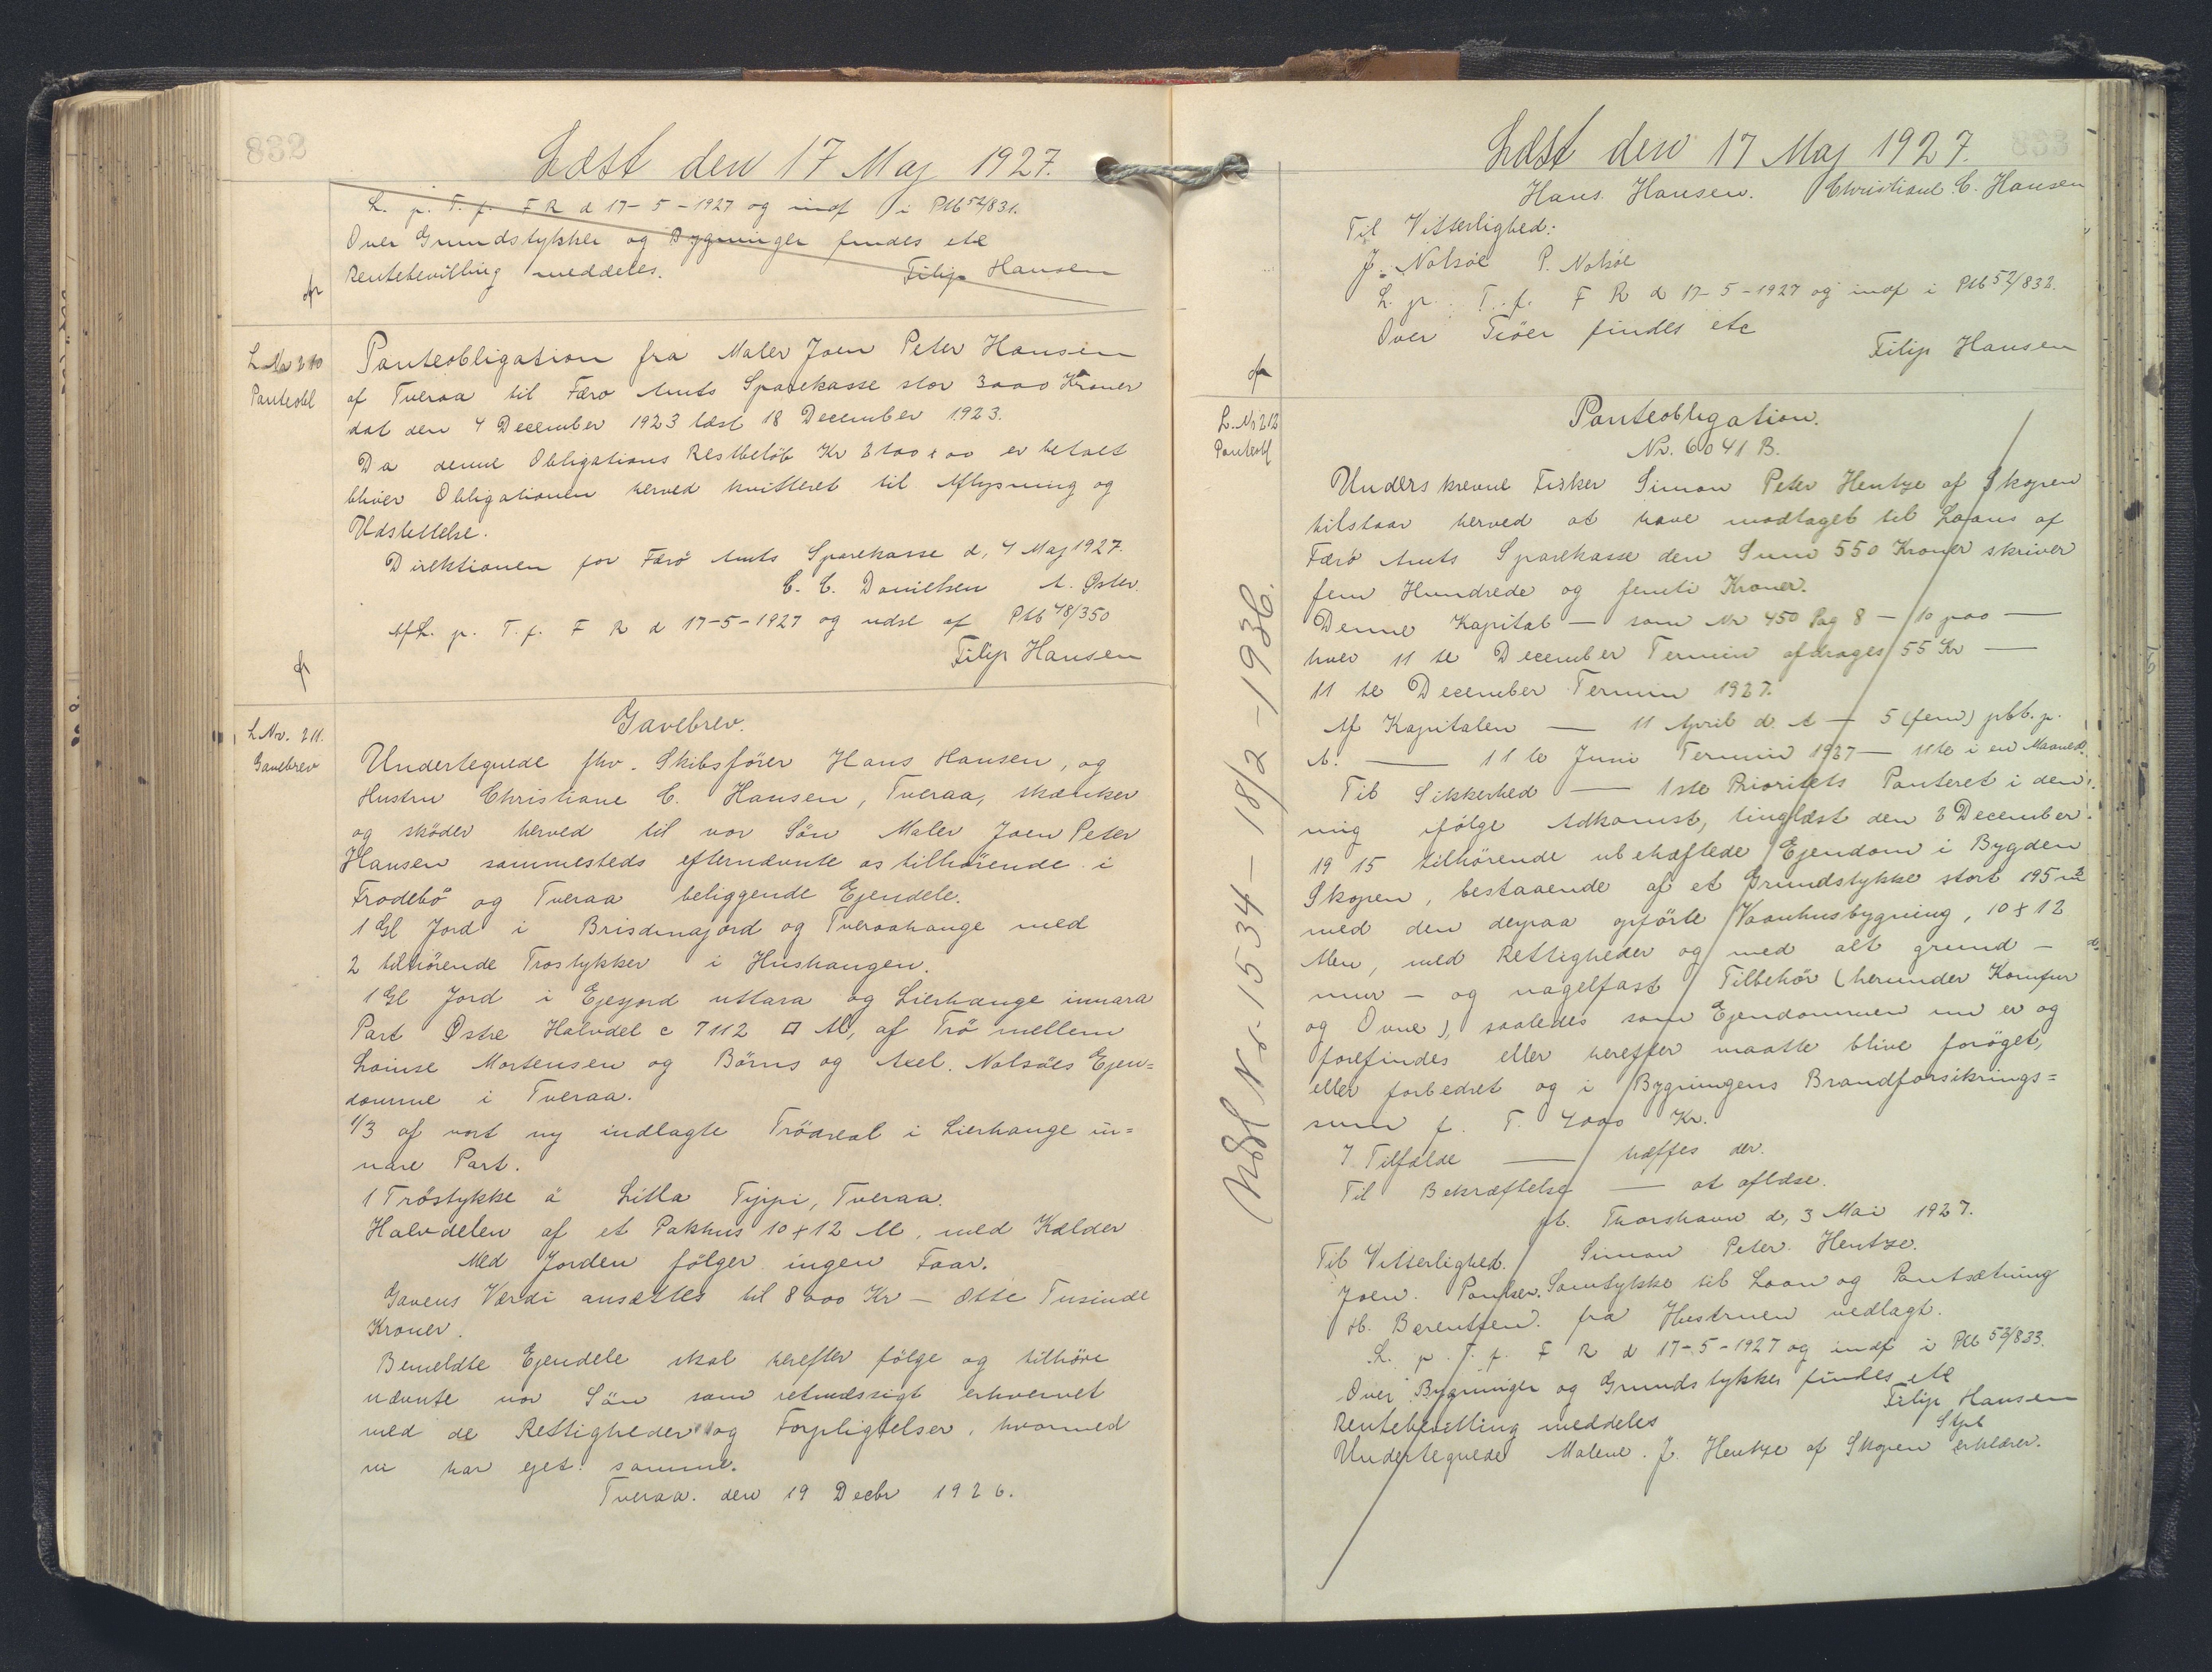 832
Læst den 17 Maj 1927.
L. p. T. f. F R d 17-5-1927 og indf i Ptb 52/831.
Over Grundstykker og Bygninger findes etc
Rentebevilling meddeles. Filip Hansen
L Nr 210
Panteobl
Panteobligation fra Maler Joen Peter Hansen
af Tveraa til Færø Amts Sparekasse stor 3000 Kroner
dat den 4 December 1923 læst 18 December 1923.
Da denne Obligations Restbeløb Kr 2100 : 00 er betalt
bliver Obligationen herved kvitteret til Aflysning og
Udslettelse.
Direktionen for Færø Amts Sparekasse d, 4 Maj 1927.
C. C. Danielsen A. Øster.
Afl. p. T. f. F R d 17-5-1927 og udsl af Ptb 48/350
Filip Hansen
L Nr. 211.
Gavebrev
Gavebrev.
Undertegnede fhv. Skibsfører Hans Hansen, og
Hustru Christiane C. Hansen, Tveraa, skænker
og skøder herved til vor Søn Maler Joen Peter
Hansen sammesteds efternævnte os tilhørende i
Frodebø og Tveraa beliggende Ejendele.
1 Gl Jord i Brisdinajord og Tveraahange med
2 tilhørende Trøstykker i Hushangen.
1 Gl Jord i Ejesjord uttara og Lierhange innara
Part Østre Halvdel c 7112 □ M, af Trø mellem
Louise Mortensen og Børns og Axel. Nolsøes Ejen=
domme i Tveraa.
1/3 af vort ny indlagte Trøareal i Lierhange in=
nare Part.
1 Trøstykke á Litla Tippi, Tveraa.
Halvdelen af et Pakhus 10 x 12 Al, med Kælder
Med Jorden følger ingen Faar.
Gavens Værdi ansættes til 8000 Kr - Otte Tusinde
Kroner.
Bemeldte Ejendele skal herefter følge og tilhøre
nævnte vor Søn som retmæssigt erhvervet
med de Rettigheder og Forpligtelser, hvormed
vi har ejet samme.
Tveraa. den 19 Decbr 1926.
833
Læst den 17 Maj 1927.
Hans Hansen. Christiane C. Hansen
Til Vitterlighed:
J. Nolsøe P. Nolsøe
L. p. T. f. F R d 17-5-1927 og indf i Ptb 52/832.
Over Trøer findes etc
Filip Hansen
L. Nr 212
Panteobl
Panteobligation.
Nr. 6041 B.
Underskrevne Fisker Simon Peter Hentze af Skopen
tilstaar herved at have modtaget til Laans af
Færø Amts Sparekasse den Sum 550 Kroner skriver
fem Hundrede og femti Kroner.
Denne Kapital — som Nr 450 Pag 8 — 10 paa —
hver 11 te December Termin afdrages 55 Kr —
11 te December Termin 1927.
Af Kapitalen — 11 April d. A — 5 (fem) pCt. p.
A. — 11 te Juni Termin 1927 — 11te i en Maaned.
Til Sikkerhed — 1ste Prioritets Panteret i den
mig ifølge Adkomst, tinglæst den 2 December
1915 tilhørende ubehæftede Ejendom i Bygden
Skopen, bestaaende af et Grundstykke stort 195 m2
med den derpaa opførte Vaanhusbygning, 10 x 12
Alen, med Rettigheder og med alt grund -
mur - og nagelfast Tilbehør (herunder Komfur
og Ovne), saaledes som Ejendommen nu er og
forefindes eller herefter maatte blive forøget,
eller forbedret og i Bygningens Brandforsikrings=
sum p. T. 4000 Kr.
I Tilfælde — træffes der.
Til Bekræftelse — at aflæse.
pt. Thorshavn d, 3 Mai 1927.
Til Vitterlighed. Simon Peter Hentze.
Joen. Poulsen. Samtykke til Laan og Pantsætning
H. Berentsen. fra Hustruen vedlagt.
L. p. T. f. F R d 17-5-1927 og indf i Ptb 52/833.
Over Bygninger og Grundstykker findes etc
Rentebevilling meddeles Filip Hansen
Undertegnede Malene. J. Hentze af Skopen erklærer.
Udsl Nr. 1534 - 18/2 - 1936.